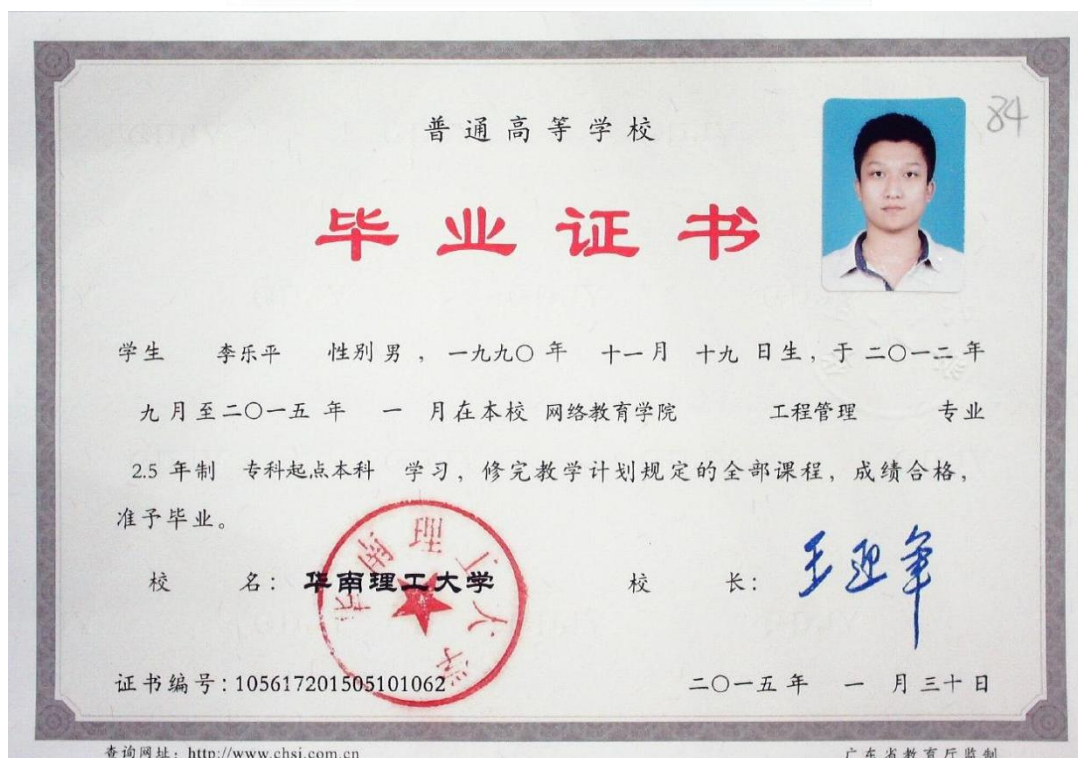 普通高等学校
84
毕业证书
学生 李乐平 性别 男 ， 一九九〇 年 十一 月 十九 日生，于 二〇一二 年
九 月至 二〇一五 年 一 月在本校 网络教育学院 工程管理 专业
2.5 年制 专科起点本科 学习，修完教学计划规定的全部课程，成绩合格，
准予毕业。
华南理工大学
校 名：华南理工大学 校 长：
证书编号：105617201505101062 二〇一五 年 一 月 三十 日
查询网址：http://www.chsi.com.cn 广东省教育厅监制